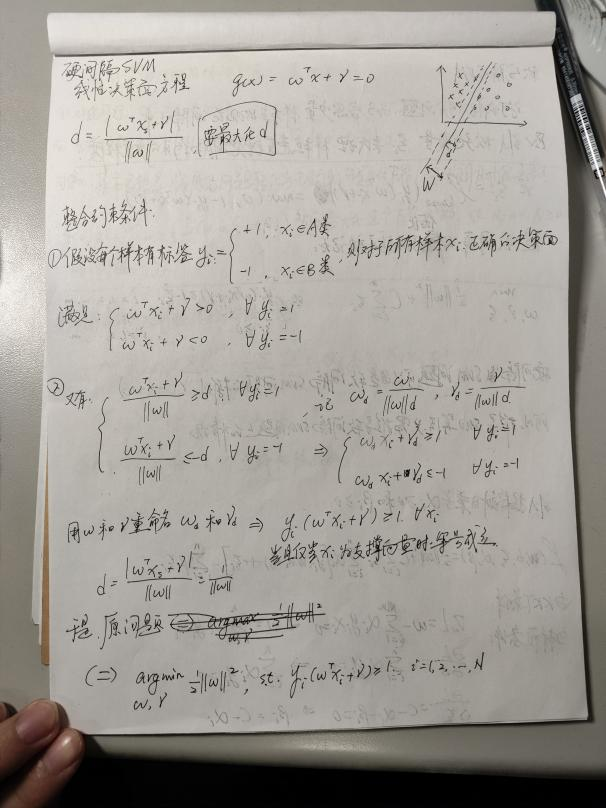 硬间隔SVM
线性决策面方程 g(x) = ω^T x + γ = 0
d = |ω^T x_i + γ| / ||ω|| 要最大化 d
W
d
整合约束条件:
① 假设每个样本有标签 y_i = { +1, x_i ∈ A类 ; -1, x_i ∈ B类 , 则对于所有样本 x_i 正确的决策面
满足: { ω^T x_i + γ > 0, ∀ y_i = 1
ω^T x_i + γ < 0, ∀ y_i = -1
② 又有: { (ω^T x_i + γ) / ||ω|| ≥ d ∀ y_i = 1 , 记 ω_d = ω / (||ω|| d) , γ_d = γ / (||ω|| d)
(ω^T x_i + γ) / ||ω|| ≤ -d, ∀ y_i = -1 ⇒ { ω_d x_i + γ_d ≥ 1 ∀ y_i = 1
ω_d x_i + γ_d ≤ -1 ∀ y_i = -1
用 ω 和 γ 重命名 ω_d 和 γ_d ⇒ y_i (ω^T x_i + γ) ≥ 1. ∀ x_i
当且仅当 x_i 为支撑向量时, 等号成立
d = |ω^T x_i + γ| / ||ω|| = 1 / ||ω||
于是, 原问题 ⇔ argmax ω,γ ½||ω||²
⇔ argmin ω,γ ½||ω||², s.t. y_i (ω^T x_i + γ) ≥ 1. i = 1, 2, ..., N